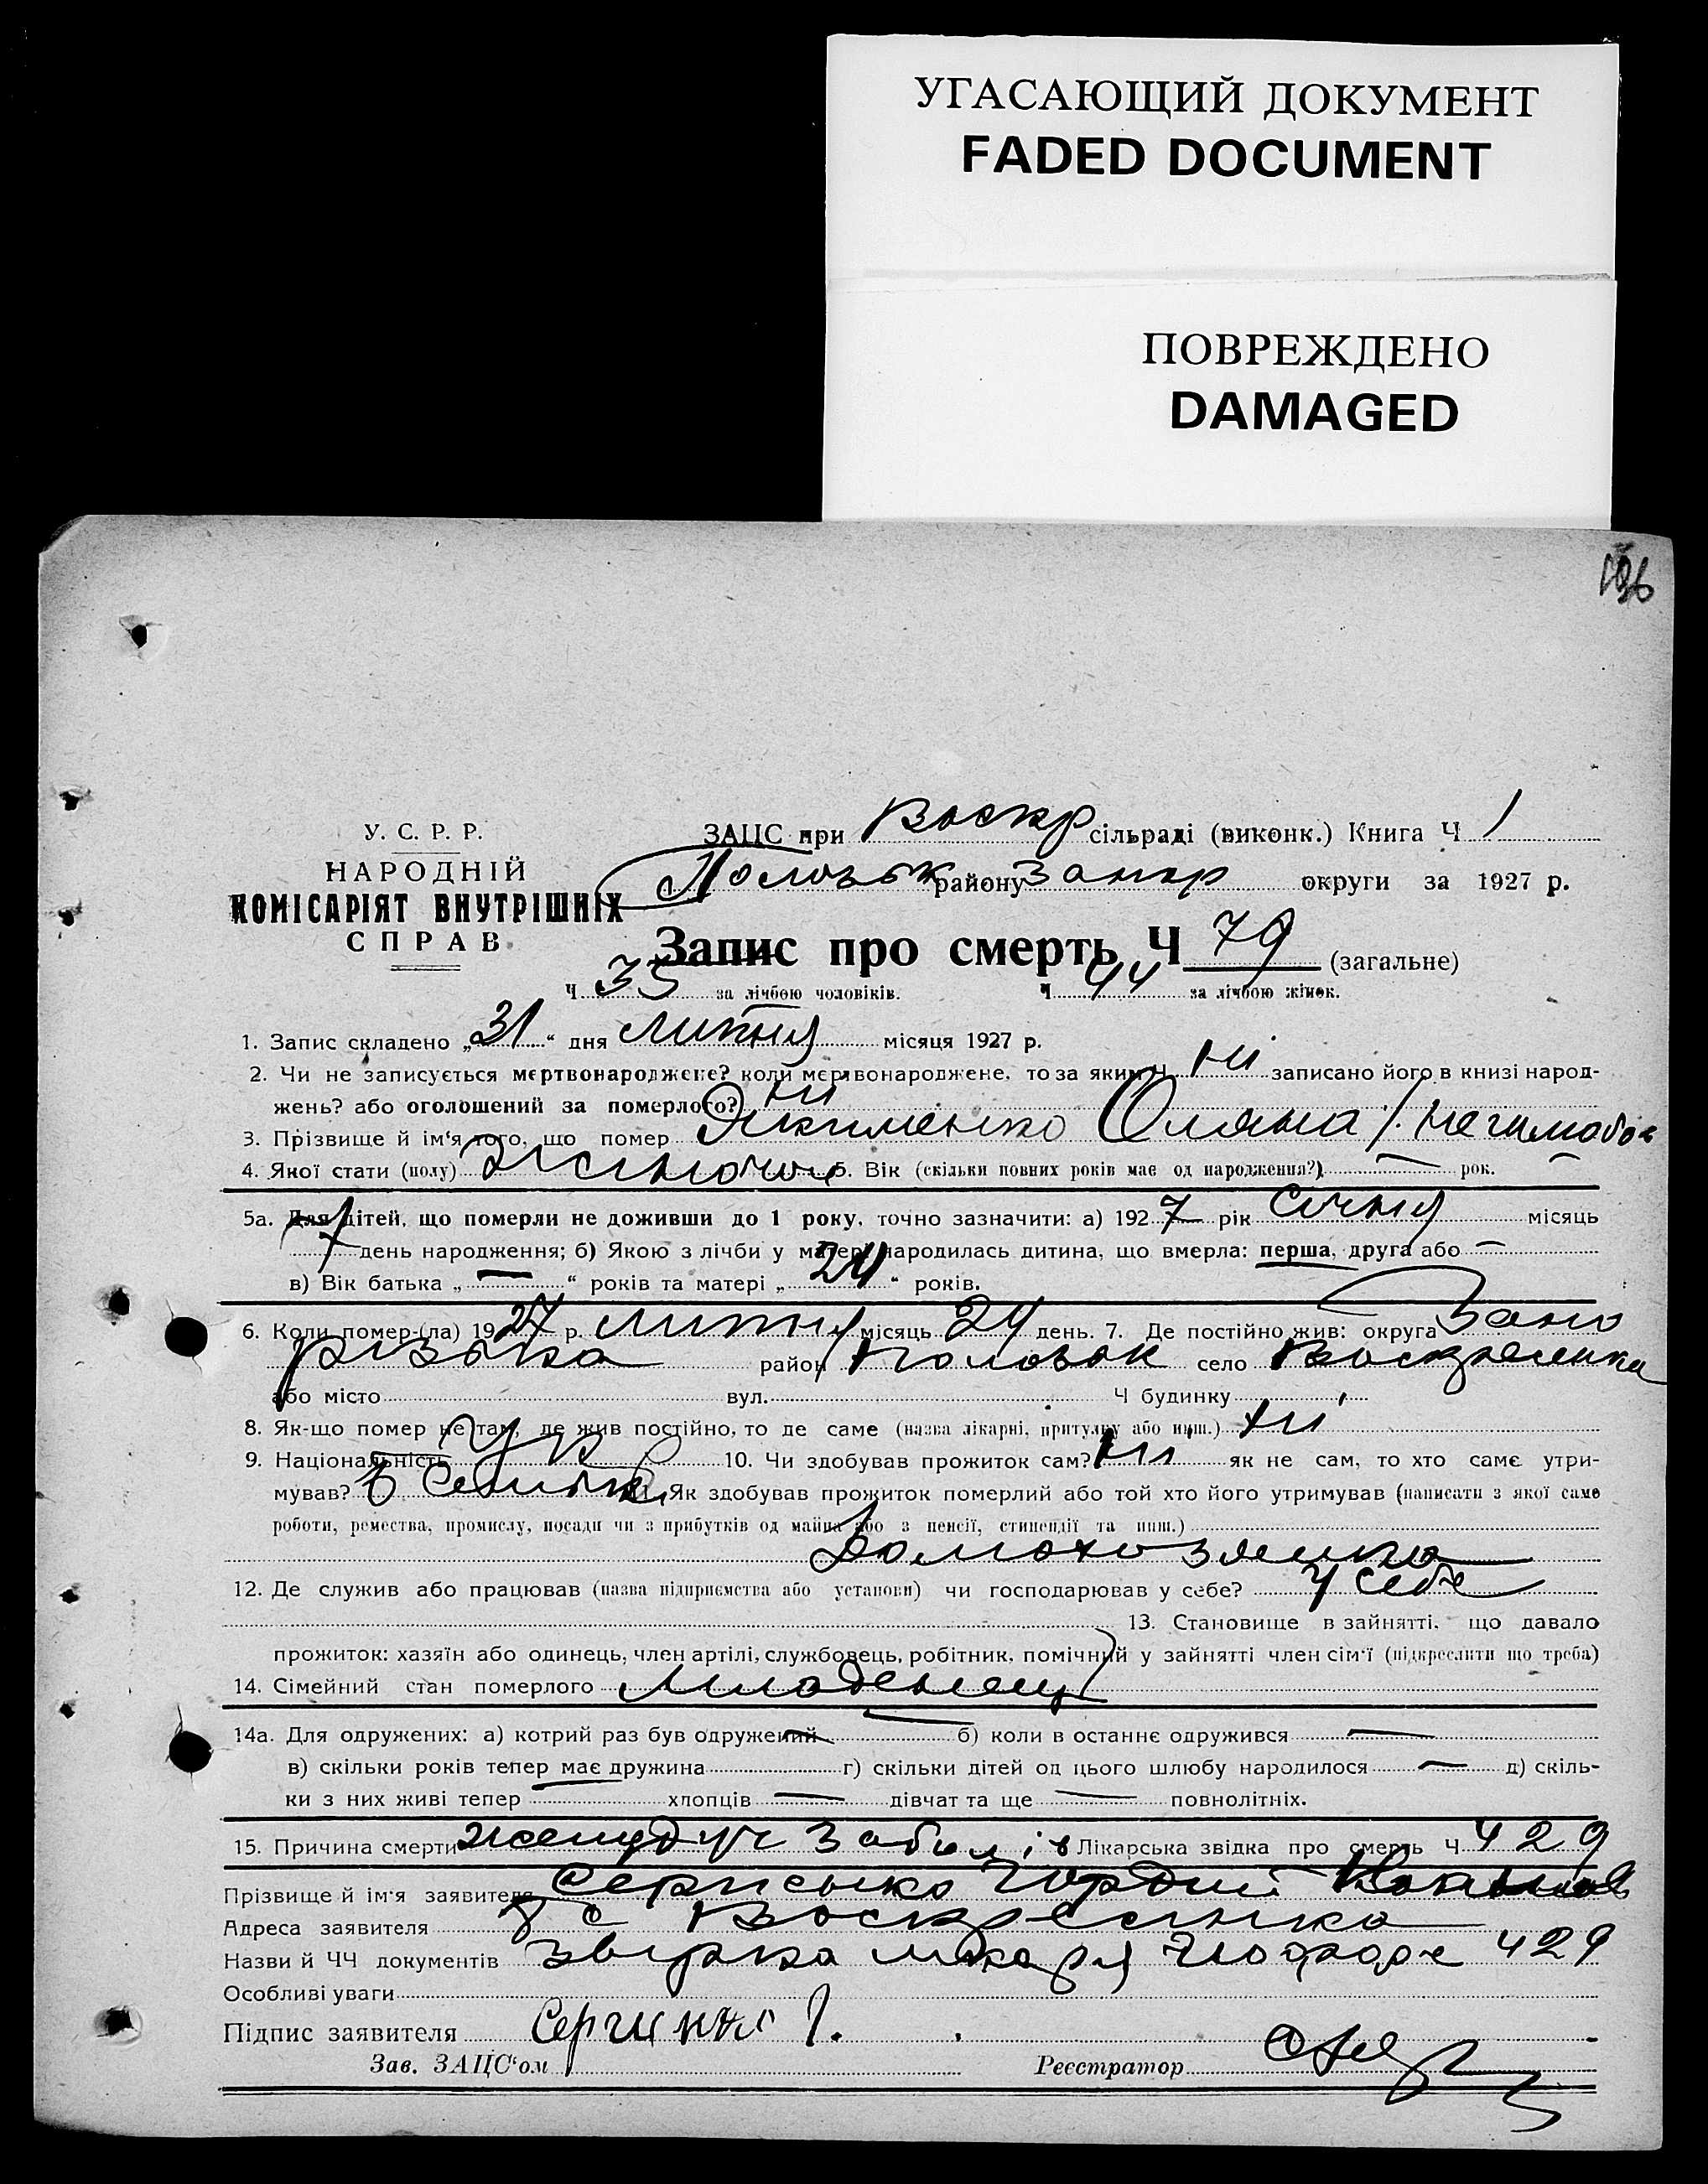 УГАСАЮЩИЙ ДОКУМЕНТ
FADED DOCUMENT
ПОВРЕЖДЕНО
DAMAGED
196
У. С. Р. Р.
НАРОДНІЙ
КОМІСАРІЯТ ВНУТРІШНІХ
СПРАВ.
ЗАЦС при Воскр сільраді (виконк.) Книга Ч 1
Пологськ району Запор округи за 1927 р.
Запис про смерть Ч 79 (загальне)
Ч 35 за лічбою чоловіків. Ч 44 за лічбою жінок.
1. Запис складено „31“ дня липня місяця 1927 р.
2. Чи не записується мертвонароджене? коли мертвонароджене, то за яким Ч ні записано його в книзі народ-
жень? або оголошений за померлого? ні
3. Прізвище й ім‘я того, що помер Якименко Оляна
4. Якої стати (полу) Жіночої 5. Вік (скільки повних років має од народження?) — рок.
5а. Для дітей, що померли не доживши до 1 року, точно зазначити: а) 192 7 рік Січня місяць
7 день народження; б) Якою з лічби у матері народилась дитина, що вмерла: перша, друга або —
в) Вік батька „—“ років та матері „24“ років.
6. Коли помер-(ла) 19 27 р. липня місяць 29 день. 7. Де постійно жив: округа Запо
різька район Пологськ село Воскресенка
або місто вул. Ч будинку
8. Як-що помер не там, де жив постійно, то де саме (назва лікарні, притулку або инш.) ні
9. Національність Ук 10. Чи здобував прожиток сам? Ні як не сам, то хто саме утри-
мував? 11. Як здобував прожиток померлий або той хто його утримував (написати з якої саме
роботи, ремества, промислу, посади чи з прибутків од майна або з пенсії, стипендії та инш.)
Домохозяйка
12. Де служив або працював (назва підприємства або установи) чи господарював у себе? У себе
13. Становище в зайнятті, що давало
прожиток: хазяїн або одинець, член артілі, службовець, робітник, помічний у зайнятті член сім‘ї (підкреслити що треба)
14. Сімейний стан померлого Младенец
14а. Для одружених: а) котрий раз був одружений — б) коли в останнє одружився —
в) скільки років тепер має дружина — г) скільки дітей од цього шлюбу народилося — д) скіль-
ки з них живі тепер — хлопців — дівчат та ще — повнолітніх.
15. Причина смерти Лікарська звідка про смерть Ч 429
Прізвище й ім‘я заявителя Гордий
Адреса заявителя с Воскресенка
Назви й ЧЧ документів лікаря 429
Особливі уваги
Підпис заявителя
Зав. ЗАЦС‘ом Реєстратор